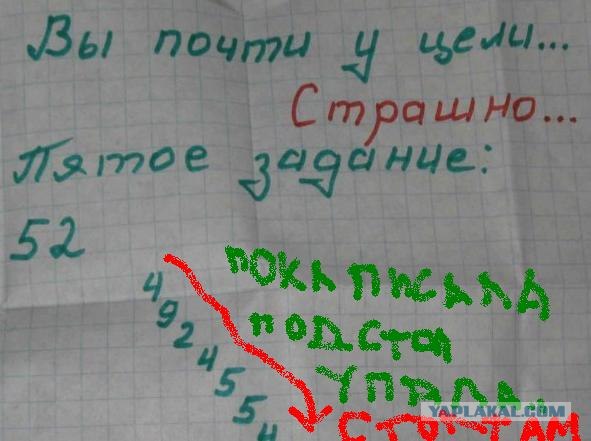 Вы почти у цели...
Страшно...
Пятое задание:
52
4
9
2
4
5
5
4
ПОКА ПИСАЛА
ПОДСТОЛ
УПАЛА,
СТОПТАМ
YAPLAKAL.COM